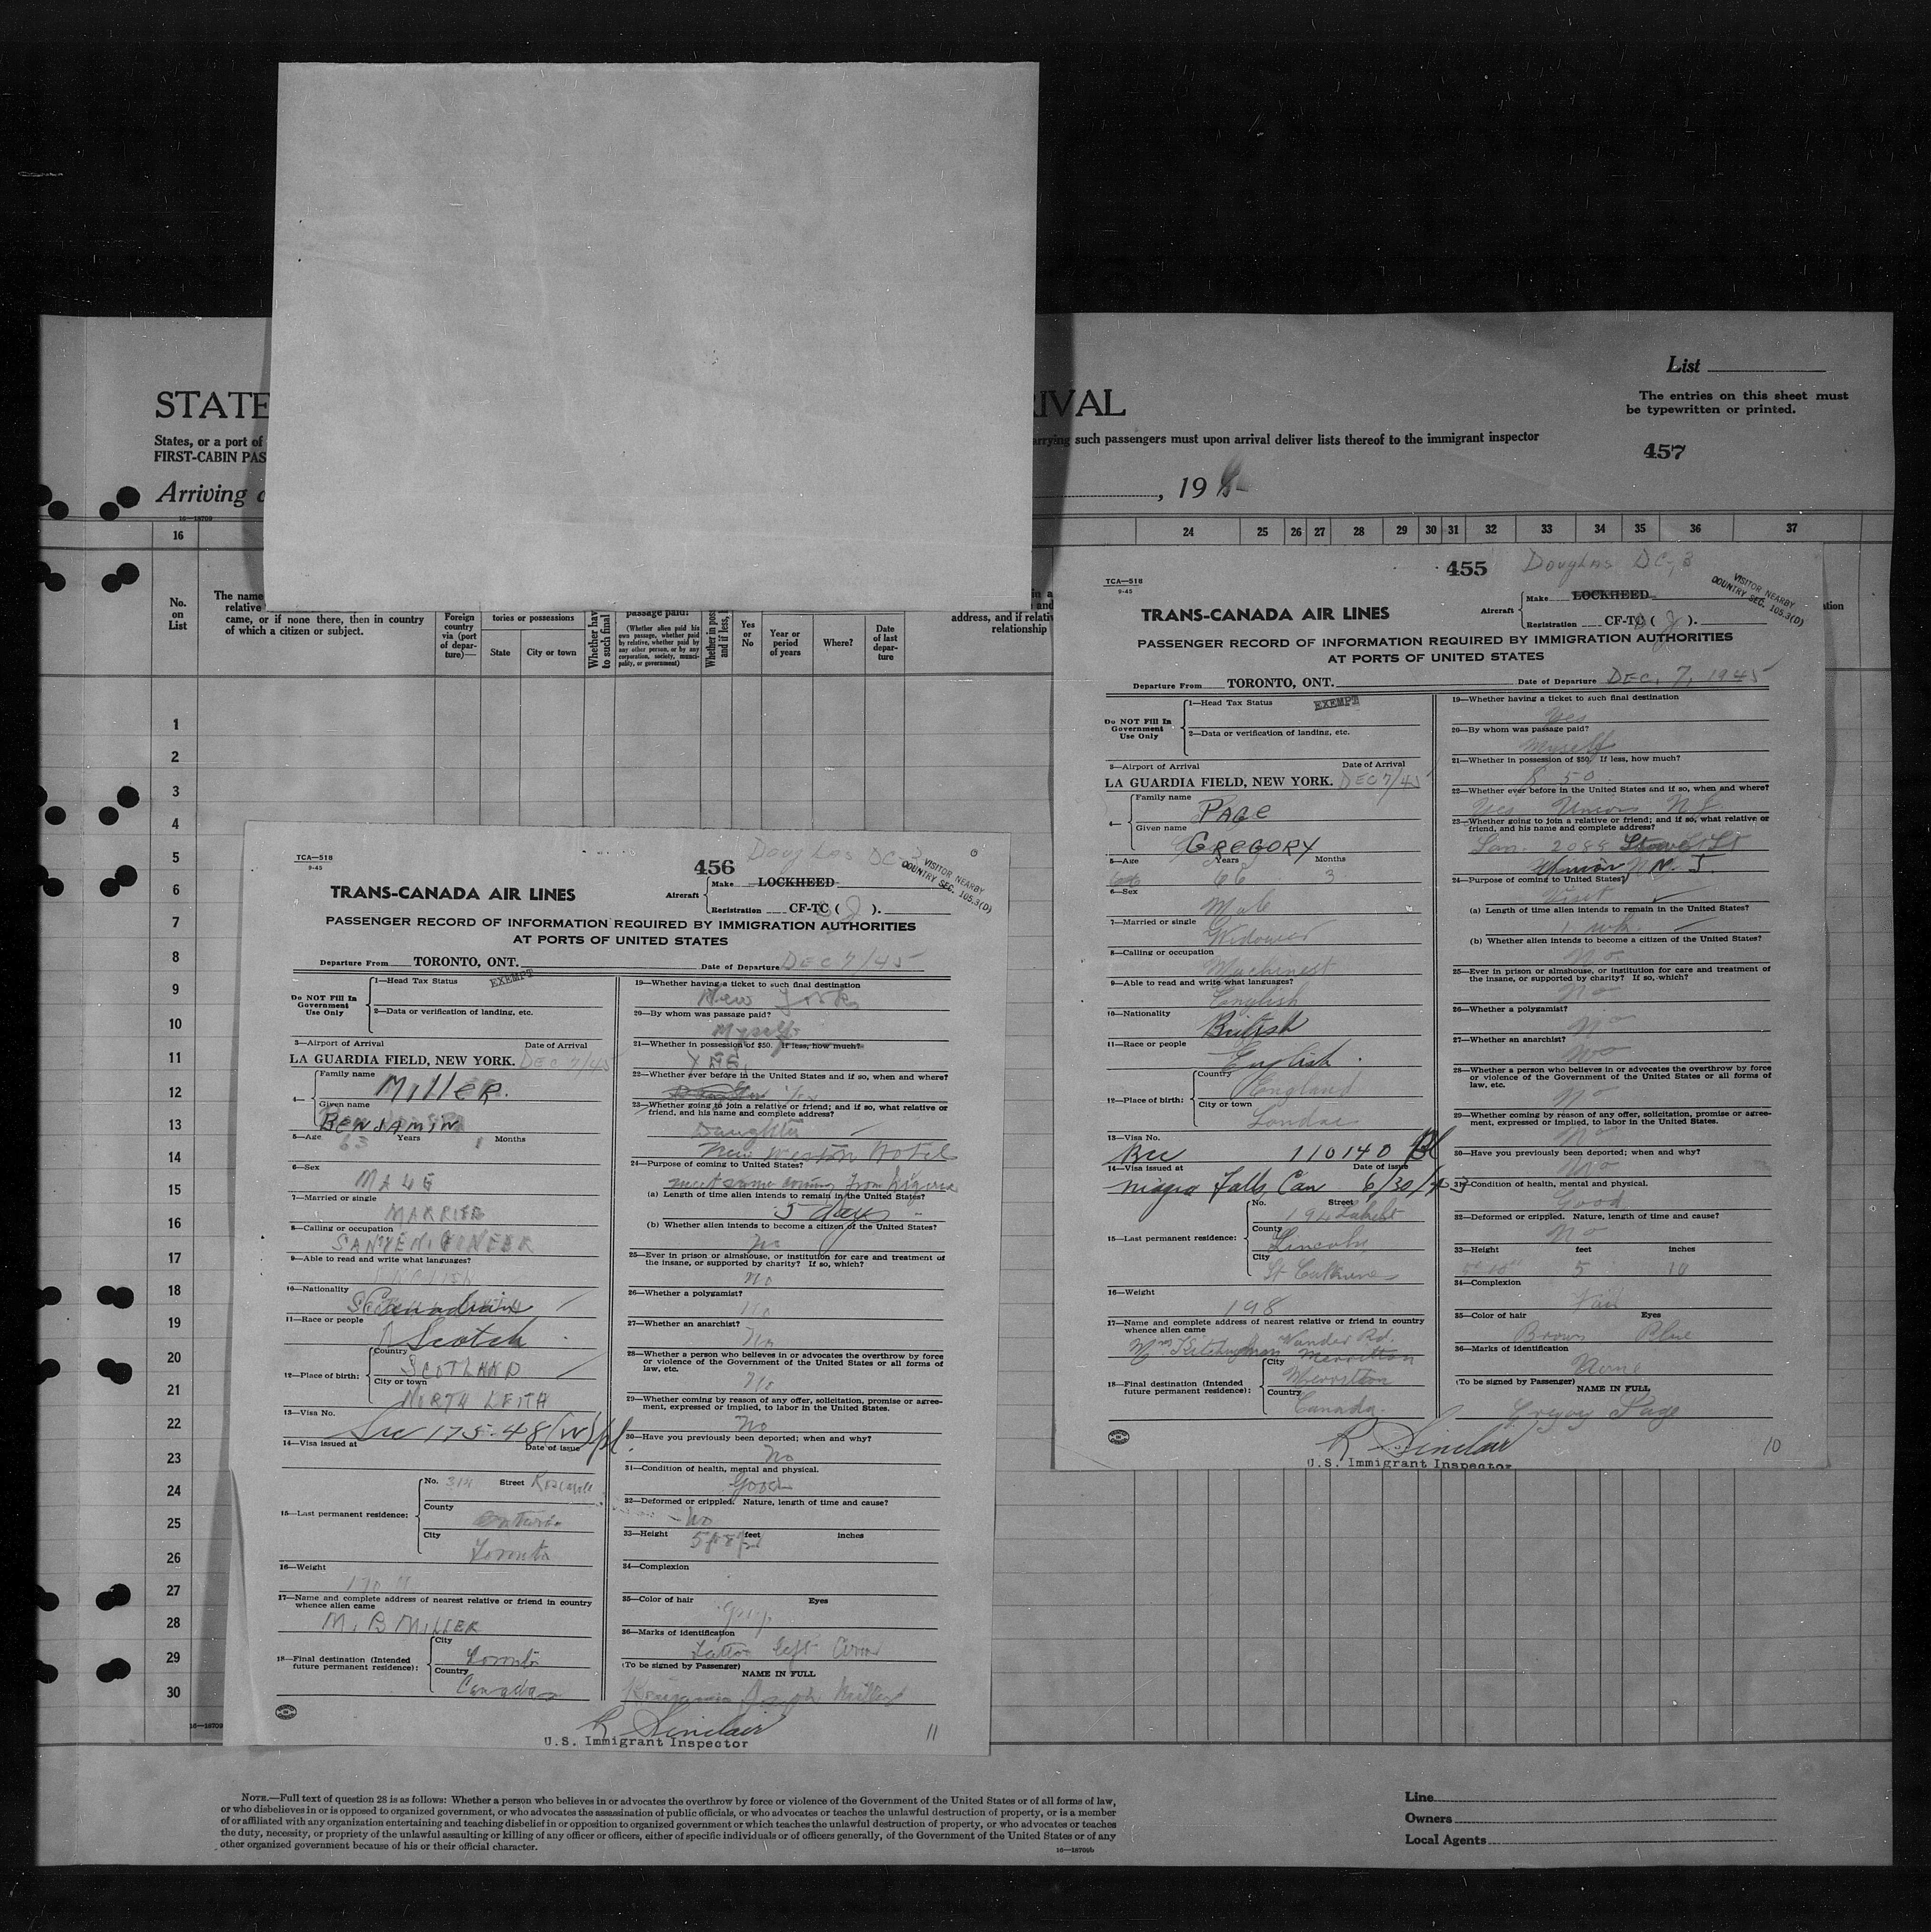 List
The entries on this sheet must
be typewritten or printed.
457
STATE
RIVAL
States, or a port of
arrying such passengers must upon arrival deliver lists thereof to the immigrant inspector
FIRST-CABIN PAS
Arriving
, 19
16—18709
16
24 25 26 27 28 29 30 31 32 33 34 35 36 37
No.
on
List
The name
relative
came, or if none there, then in country
of which a citizen or subject.
Foreign
country
via (port
of depar-
ture)—
tories or possessions
State
City or town
Whether hav
to such final
passage paid?
(Whether alien paid his
own passage, whether paid
by relative, whether paid by
any other person, or by any
corporation, society, munici-
pality, or government)
Whether in poss
and if less,
Yes
or
No
Year or
period
of years
Where?
Date
of last
depar-
ture
address, and if relativ
relationship
1
2
3
4
5
6
7
8
9
10
11
12
13
14
15
16
17
18
19
20
21
22
23
24
25
26
27
28
29
30
TCA—518
9-45
456
Douglas DC-3
VISITOR NEARBY
COUNTRY SEC. 105.3(D)
TRANS-CANADA AIR LINES
Aircraft
Make LOCKHEED
Registration CF-TC ( J ).
PASSENGER RECORD OF INFORMATION REQUIRED BY IMMIGRATION AUTHORITIES
AT PORTS OF UNITED STATES
Departure From TORONTO, ONT. Date of Departure DEC 7/45
Do NOT Fill In
Government
Use Only
1—Head Tax Status EXEMPT
2—Data or verification of landing, etc.
3—Airport of Arrival Date of Arrival
LA GUARDIA FIELD, NEW YORK. DEC 7/45
4—
Family name
MILLER.
Given name
BENJAMIN
5—Age 63 Years Months
6—Sex
MALE
7—Married or single
MARRIED
8—Calling or occupation
9—Able to read and write what languages?
10—Nationality
Canadian
11—Race or people
Scotch
12—Place of birth:
Country
SCOTLAND
City or town
NORTH LEITH
13—Visa No.
175-48(W)
14—Visa issued at Date of issue
15—Last permanent residence:
No. 314 Street
County
Ontario
City
Toronto
16—Weight
170
17—Name and complete address of nearest relative or friend in country
whence alien came
M. B MILLER
18—Final destination (Intended
future permanent residence):
City
Toronto
Country
Canada
19—Whether having a ticket to such final destination
New York
20—By whom was passage paid?
Myself
21—Whether in possession of $50. If less, how much?
YES
22—Whether ever before in the United States and if so, when and where?
23—Whether going to join a relative or friend; and if so, what relative or
friend, and his name and complete address?
Daughter
New Weston Hotel
24—Purpose of coming to United States?
meet some coming from
(a) Length of time alien intends to remain in the United States?
5 days
(b) Whether alien intends to become a citizen of the United States?
No
25—Ever in prison or almshouse, or institution for care and treatment of
the insane, or supported by charity? If so, which?
no
26—Whether a polygamist?
no
27—Whether an anarchist?
no
28—Whether a person who believes in or advocates the overthrow by force
or violence of the Government of the United States or all forms of
law, etc.
no
29—Whether coming by reason of any offer, solicitation, promise or agree-
ment, expressed or implied, to labor in the United States.
No
30—Have you previously been deported; when and why?
No
31—Condition of health, mental and physical.
Good
32—Deformed or crippled. Nature, length of time and cause?
No
33—Height feet inches
34—Complexion
35—Color of hair Eyes
Grey
36—Marks of identification
Tattoo left arm
(To be signed by Passenger) NAME IN FULL
Benjamin Joseph Miller
R Sinclair
U.S. Immigrant Inspector
11
455
Douglas DC-3
TCA—518
9-45
VISITOR NEARBY
COUNTRY SEC. 105.3(D)
TRANS-CANADA AIR LINES
Aircraft
Make LOCKHEED
Registration CF-TC ( J ).
PASSENGER RECORD OF INFORMATION REQUIRED BY IMMIGRATION AUTHORITIES
AT PORTS OF UNITED STATES
Departure From TORONTO, ONT. Date of Departure DEC. 7, 1945
Do NOT Fill In
Government
Use Only
1—Head Tax Status EXEMPT
2—Data or verification of landing, etc.
3—Airport of Arrival Date of Arrival
LA GUARDIA FIELD, NEW YORK. DEC 7/45
4—
Family name
PAGE
Given name
GREGORY
5—Age Years Months
66 3
6—Sex
Male
7—Married or single
Widower
8—Calling or occupation
Machinest
9—Able to read and write what languages?
English
10—Nationality
British
11—Race or people
English
12—Place of birth:
Country
England
City or town
London
13—Visa No.
110140
14—Visa issued at Date of issue
Niagra Falls, Can 6/30/43
15—Last permanent residence:
No. Street
194
County
Lincoln
City
St Catherines
16—Weight
198
17—Name and complete address of nearest relative or friend in country
whence alien came
Merritton
18—Final destination (Intended
future permanent residence):
City
Merritton
Country
Canada.
19—Whether having a ticket to such final destination
Yes
20—By whom was passage paid?
Myself
21—Whether in possession of $50. If less, how much?
$ 50
22—Whether ever before in the United States and if so, when and where?
Yes Union N J.
23—Whether going to join a relative or friend; and if so, what relative or
friend, and his name and complete address?
Son. 2088 Stowe St
Union N. J.
24—Purpose of coming to United States?
Visit
(a) Length of time alien intends to remain in the United States?
1 wk.
(b) Whether alien intends to become a citizen of the United States?
No
25—Ever in prison or almshouse, or institution for care and treatment of
the insane, or supported by charity? If so, which?
No
26—Whether a polygamist?
No
27—Whether an anarchist?
No
28—Whether a person who believes in or advocates the overthrow by force
or violence of the Government of the United States or all forms of
law, etc.
No
29—Whether coming by reason of any offer, solicitation, promise or agree-
ment, expressed or implied, to labor in the United States.
No
30—Have you previously been deported; when and why?
No
31—Condition of health, mental and physical.
Good
32—Deformed or crippled. Nature, length of time and cause?
No
33—Height feet inches
5 10
34—Complexion
Fair
35—Color of hair Eyes
Brown Blue
36—Marks of identification
None
(To be signed by Passenger) NAME IN FULL
Gregory Page
R Sinclair
U.S. Immigrant Inspector
10
16—18709
NOTE.—Full text of question 28 is as follows: Whether a person who believes in or advocates the overthrow by force or violence of the Government of the United States or of all forms of law,
or who disbelieves in or is opposed to organized government, or who advocates the assassination of public officials, or who advocates or teaches the unlawful destruction of property, or is a member
of or affiliated with any organization entertaining and teaching disbelief in or opposition to organized government or which teaches the unlawful destruction of property, or who advocates or teaches
the duty, necessity, or propriety of the unlawful assaulting or killing of any officer or officers, either of specific individuals or of officers generally, of the Government of the United States or of any
other organized government because of his or their official character.
16—18709b
Line
Owners
Local Agents